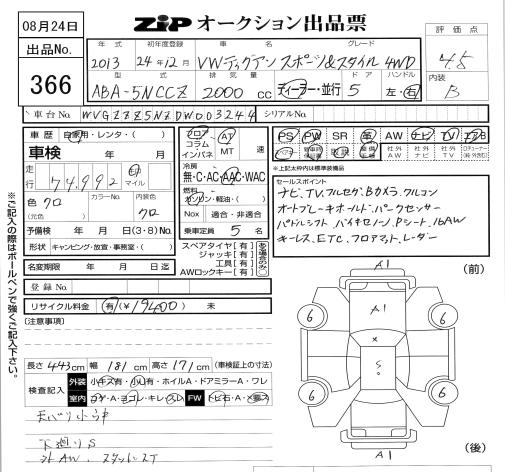 08月24日
ZIP オークション出品票
出品No.
366
評価点
4.5
内装
B
年式 初年度登録 車名 グレード
2013 24年12月 VWティグアン スポーツ&スタイル 4WD
型式 排気量 ドア ハンドル
ABA-5NCCZ 2000cc ディーラー・並行 5 左・右
車台No. WVGZZZ5NZDW003244 シリアルNo.
車歴 自家用・レンタ・( )
車検 年 月
走行 74,992 km マイル
色 クロ (元色) カラーNo. 内装色 クロ
予備検 年 月 日 (3・8)No.
形状 キャンピング・放宣・事務室・( )
名変期限 年 月 日迄
登録No.
リサイクル料金 有(¥19400) 未
フロア コラム インパネ
AT MT 速
冷房 無・C・AC・AAC・WAC
燃料 ガソリン・軽油・( )
Nox 適合・非適合
乗車定員 5 名
スペアタイヤ【有】
ジャッキ【有】
工具【有】
AWロックキー【有】
PS PW SR 革 AW ナビ TV エアB
取説 社外AW 社外ナビ 社外TV
※上記太枠内は標準装備品
セールスポイント
ナビ、TV、フルセグ、Bカメラ、ウルコン
オートブレーキホールド、パークセンサー
パドルシフト、バイキセノン、Pシート、16AW
キーレス、ETC、フロアマット、レーダー
※ご記入の際はボールペンで強くご記入下さい。
[注意事項]
長さ 443cm 幅 181cm 高さ 171cm (車検証上の寸法)
検査記入 外装 小キズ有・小凹有・ホイルA・ドアミラーA・ワレ
室内 コゲA・ヨゴレ・キレ・スレ FW トビ石A・X要ス
天バリ小シ中
下廻りS
(前)
A1
6 6
A1
X
S
6 6
A1
(後)